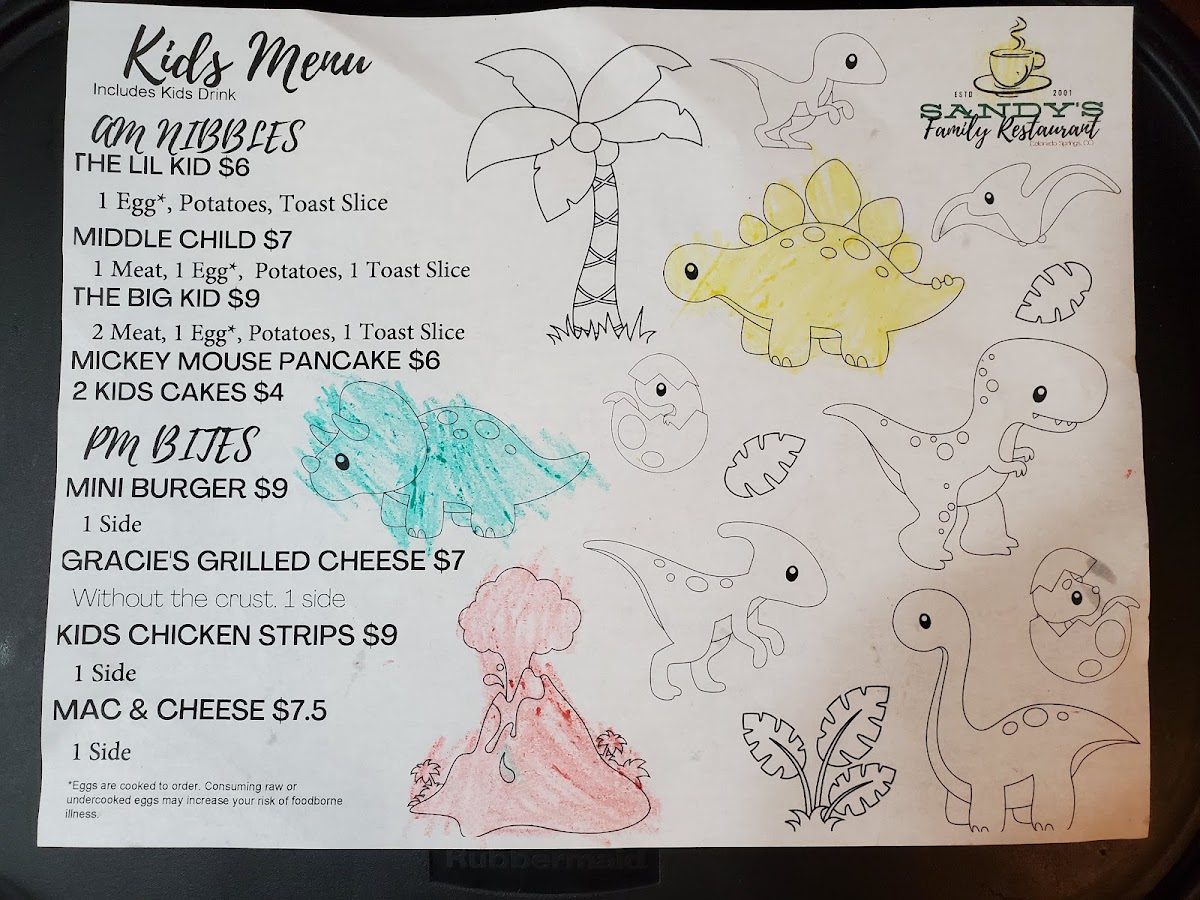 Kids Menu
Includes Kids Drink
AM NIBBLES
THE LIL KID $6
1 Egg*, Potatoes, Toast Slice
MIDDLE CHILD $7
1 Meat, 1 Egg*, Potatoes, 1 Toast Slice
THE BIG KID $9
2 Meat, 1 Egg*, Potatoes, 1 Toast Slice
MICKEY MOUSE PANCAKE $6
2 KIDS CAKES $4
PM BITES
MINI BURGER $9
1 Side
GRACIE'S GRILLED CHEESE $7
Without the crust. 1 side
KIDS CHICKEN STRIPS $9
1 Side
MAC & CHEESE $7.5
1 Side
*Eggs are cooked to order. Consuming raw or
undercooked eggs may increase your risk of foodborne
illness.
ESTD 2001
SANDY'S
Family Restaurant
Colorado Springs, CO
Rubbermaid